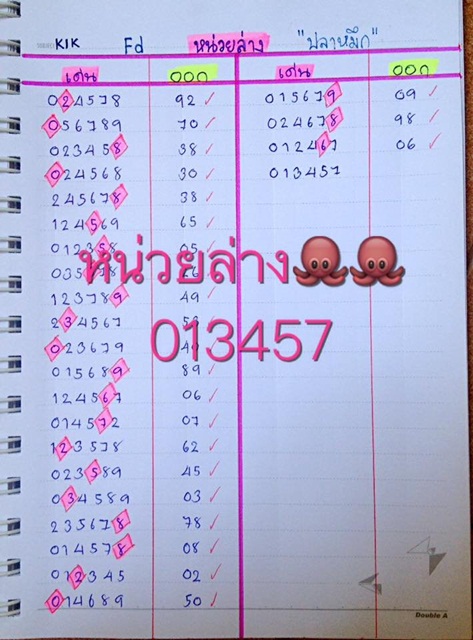 KIK Fd หน่วยล่าง "ปลาหมึก"
เด่น ออก เด่น ออก
024578 92 ✓ 015679 09 ✓
056789 70 ✓ 024678 98 ✓
023458 38 ✓ 012467 06 ✓
024568 30 ✓ 013457
245678 38 ✓
124569 65 ✓
012358 05
หน่วยล่าง🐙🐙
123789 49 ✓
234567
013457
023679
015689 89 ✓
124567 06 ✓
014572 07 ✓
123578 62 ✓
023589 45 ✓
034589 03 ✓
235678 78 ✓
014578 08 ✓
012345 02 ✓
014689 50 ✓
Double A